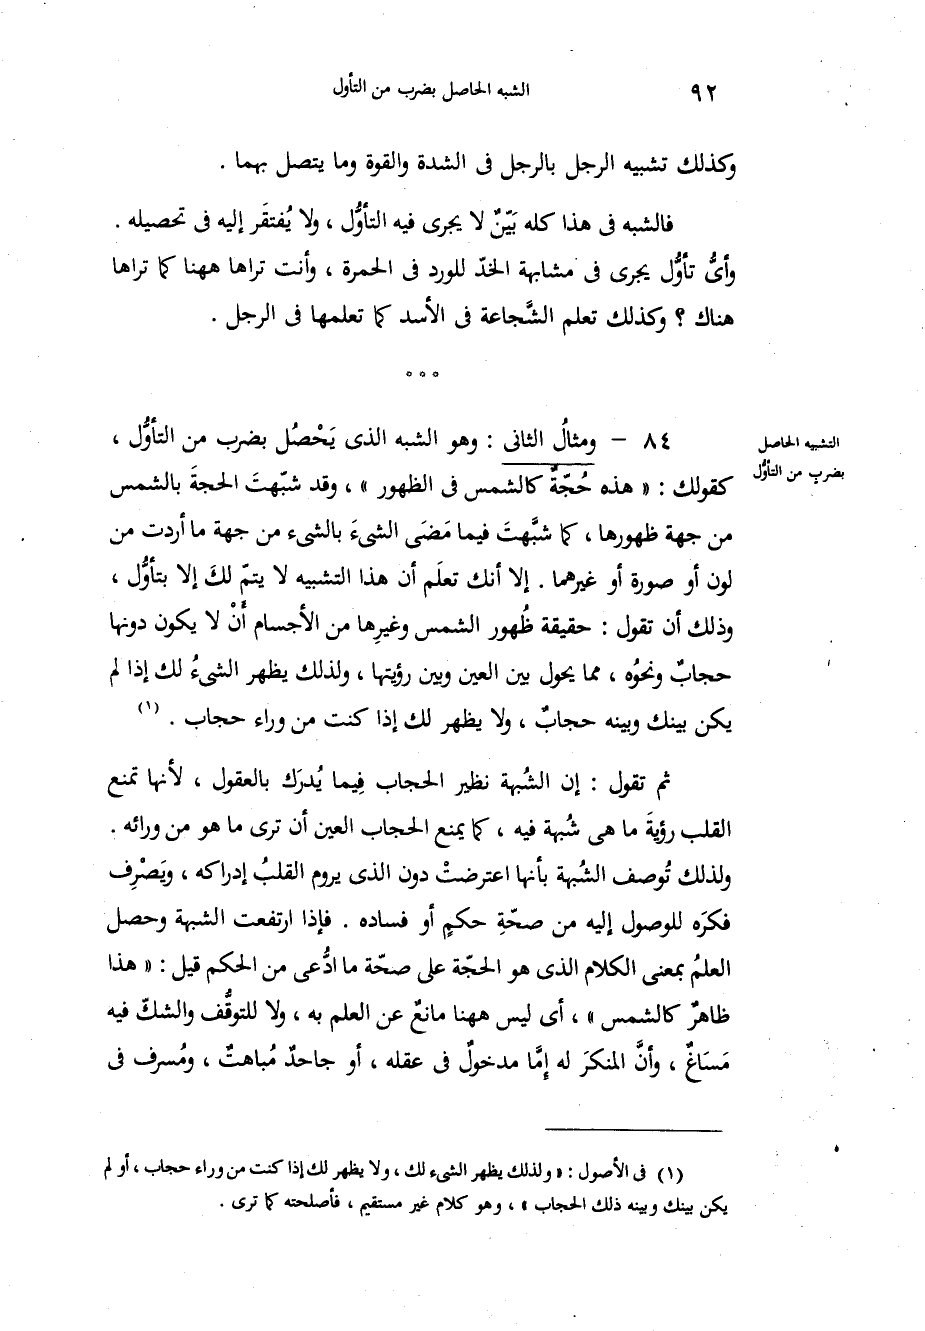 ٩٢
الشبه الحاصل بضرب من التأول
وكذلك تشبيه الرجل بالرجل فى الشدة والقوة وما يتصل بهما .
فالشبه فى هذا كله بَيّنٌ لا يجرى فيه التأوُّل ، ولا يُفتقَر إليه فى تحصيله .
وأىُّ تأوُّل يجرى فى مشابهة الخدّ للورد فى الحمرة ، وأنت تراها ههنا كما تراها
هناك ؟ وكذلك تعلم الشَّجاعة فى الأسد كما تعلمها فى الرجل .
° ° °
٨٤ – ومثالُ الثانى : وهو الشبه الذى يَحْصُل بضرب من التأوُّل ،
التشبيه الحاصل
بضربٍ من التأوُّل
كقولك : « هذه حُجّةٌ كالشمس فى الظهور » ، وقد شبّهتَ الحجةَ بالشمس
من جهة ظهورها ، كما شبَّهتَ فيما مَضَى الشىءَ بالشىء من جهة ما أردت من
لون أو صورة أو غيرهما . إلا أنك تعلَم أن هذا التشبيه لا يتمّ لكَ إلا بتأوُّل ،
وذلك أن تقول : حقيقة ظُهور الشمس وغيرِها من الأجسام أَنْ لا يكون دونها
حجابٌ ونحوُه ، مما يحول بين العين وبين رؤيتها ، ولذلك يظهر الشىءُ لك إذا لم
يكن بينك وبينه حجابٌ ، ولا يظهر لك إذا كنت من وراء حجاب . (١)
ثم تقول : إن الشُبهة نظير الحجاب فِيما يُدرَك بالعقول ، لأنها تمنع
القلب رؤيةَ ما هى شُبهة فيه ، كما يمنع الحجاب العين أن ترى ما هو من ورائه .
ولذلك تُوصف الشُبهة بأنها اعترضتْ دون الذى يروم القلبُ إدراكه ، ويَصْرِف
فكرَه للوصول إليه من صحّةِ حكمٍ أو فساده . فإذا ارتفعت الشبهة وحصل
العلمُ بمعنى الكلام الذى هو الحجّة على صحّة ما ادُّعى من الحكم قيل : « هذا
ظاهرٌ كالشمس » ، أى ليس ههنا مانعٌ عن العلم به ، ولا للتوقُّف والشكّ فيه
مَسَاغٌ ، وأنَّ المنكرَ له إمَّا مدخولٌ فى عقله ، أو جاحدٌ مُباهتٌ ، ومُسرف فى
(١) فى الأصول : « ولذلك يظهر الشىء لك ، ولا يظهر لك إذا كنت من وراء حجاب ، أو لم
يكن بينك وبينه ذلك الحجاب » ، وهو كلام غير مستقيم ، فأصلحته كما ترى .